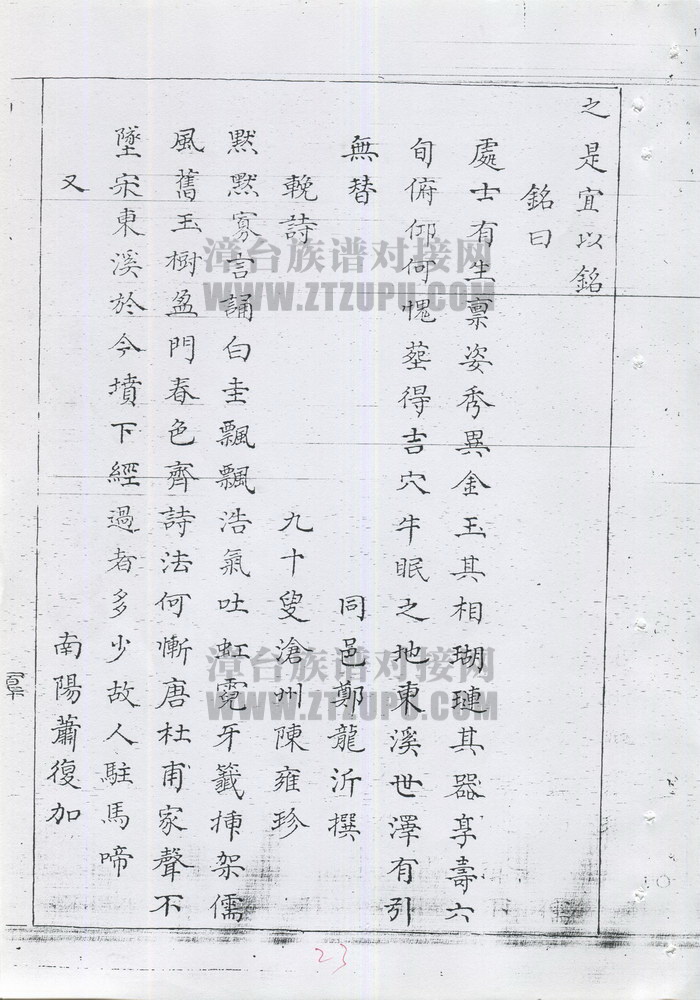 之是宜以銘
銘曰
處士有生稟姿秀異金玉其相瑚璉其器享壽六
旬俯仰何愧塟得吉穴牛眠之地東溪世澤有引
無替
同邑鄭龍沂撰
輓詩
九十叟滄州陳雍珍
默默寡言誦白圭飄飄浩氣吐虹霓牙籤揷架儒
風舊玉樹盈門春色齊詩法何慚唐杜甫家聲不
墜宋東溪於今墳下經過者多少故人駐馬啼
又
南陽蕭復加
漳台族谱对接网
WWW.ZTZUPU.COM
漳台族谱对接网
WWW.ZTZUPU.COM
23